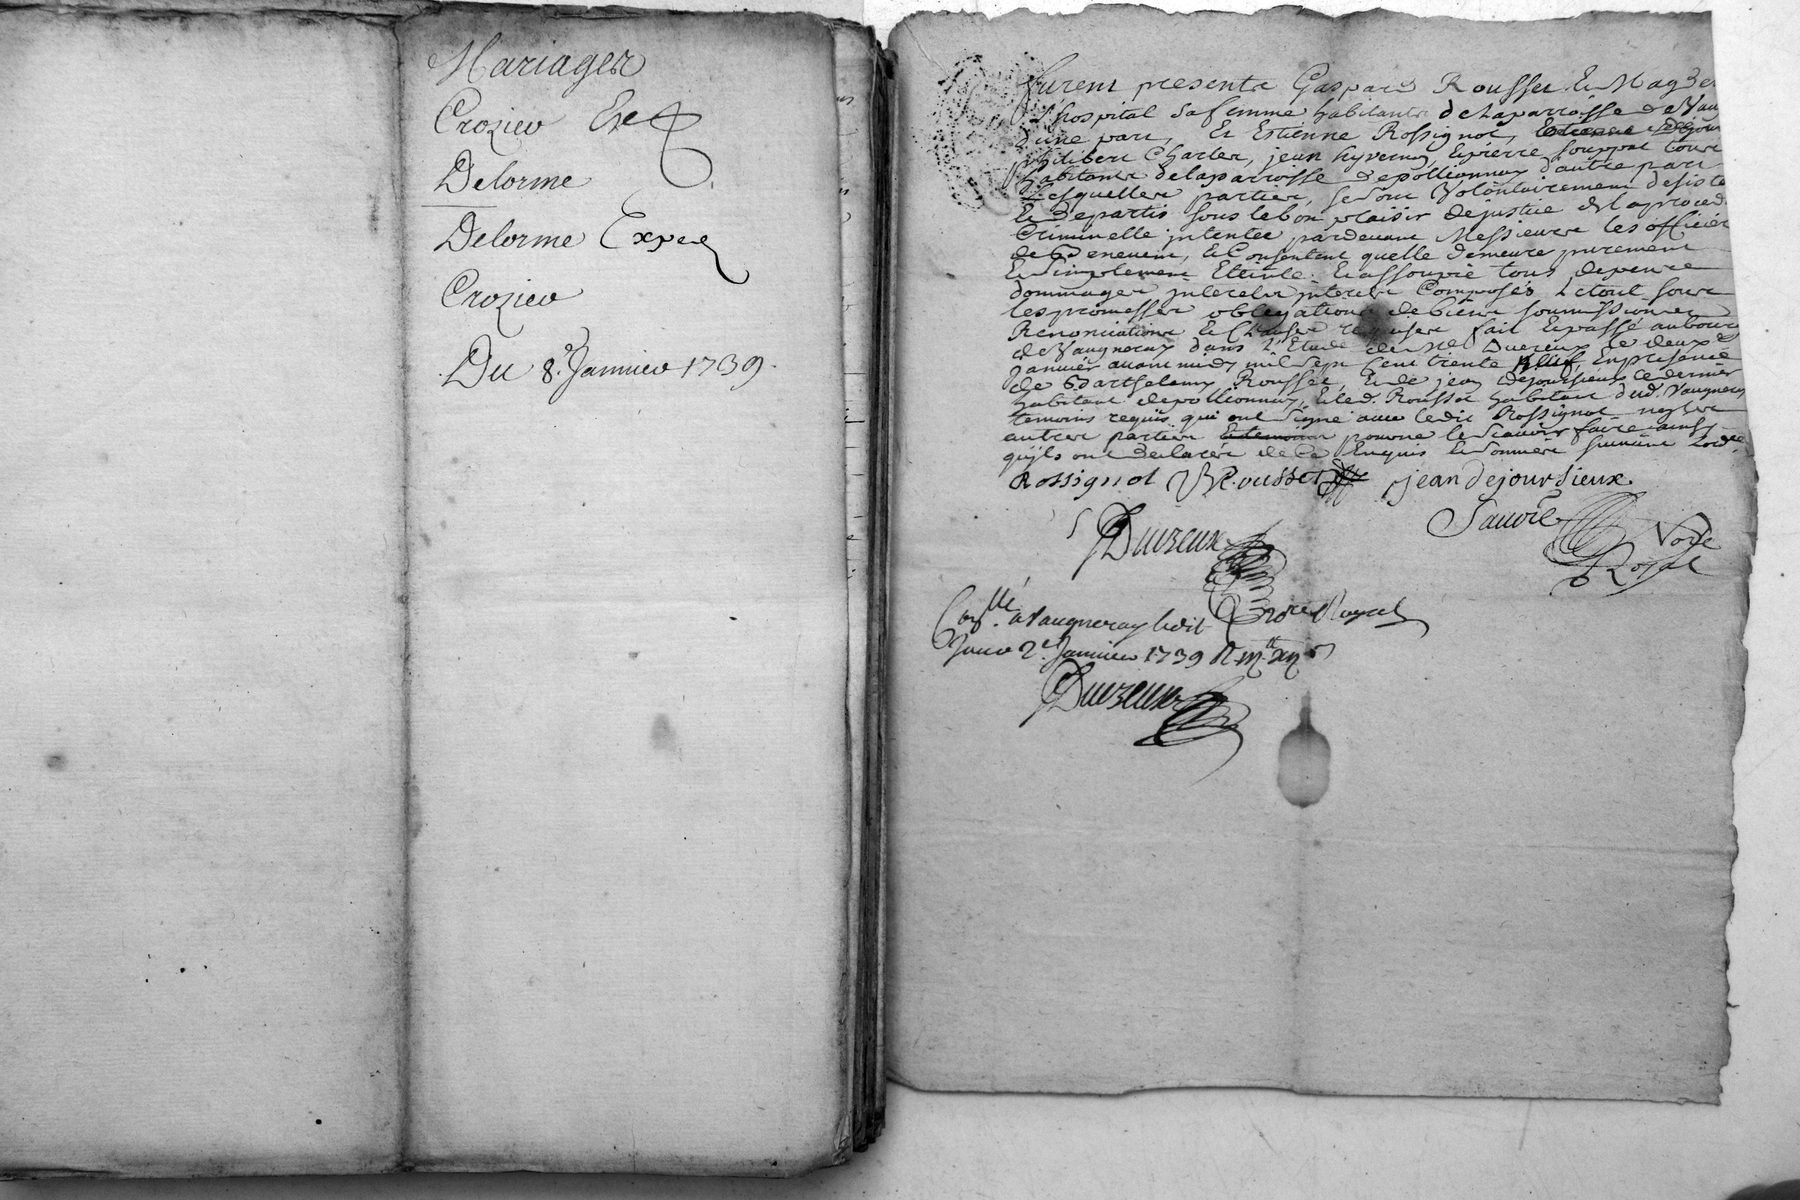 Mariages
Crozier Exp
Delorme
Delorme Exped
Crozier
Du 8.e Janvier 1739.
furent presents Gaspard Rousset Et Magde
L'hospital sa femme habitants de la parroisse de Vau
d'une part, Et Estienne Rossignol,
philibert Charles, jean hyvernay, Et pierre Souppat tous
habitants de la parroisse de pollionnay d'autre part
Lesquelles parties, se sont Volontairement desiste
Et departis sous le bon plaisir de justice de la proced
Criminelle intentée pardevant Messieurs les officier
de Benevent, Et Consentent quelle demeure purement
Et simplement Eteinte Et assoupie tous depens
dommages interests interests Composés Le tout sous
les promesses obligations de biens soumissions
Renonciations Et Clauses requises fait Et passé au bourg
de Vaugneray dans l'Etude de Me Duvzeux le deux
janvier avant midy mil sept Cent trente Neuf, En presence
de Barthelemy Rousset, Et de jean Dejoursieux ce dernier
habitant de pollionnay, Et led. Rousset habitant dud. Vaugneray
temoins requis qui ont signé avec ledit Rossignol non les
autres parties Et temoins pour ne le scavoir faire ainsy
qu'ils ont declaré de ce Enquis Et sommés suivant Lordce
Rossignol BRousset jean dejoursieux.
Duvzeux Sauvie
Nore Royal
Con.llé a Vaugneray ledit Nore Royal
Jour 2.e Janvier 1739
Duvzeux